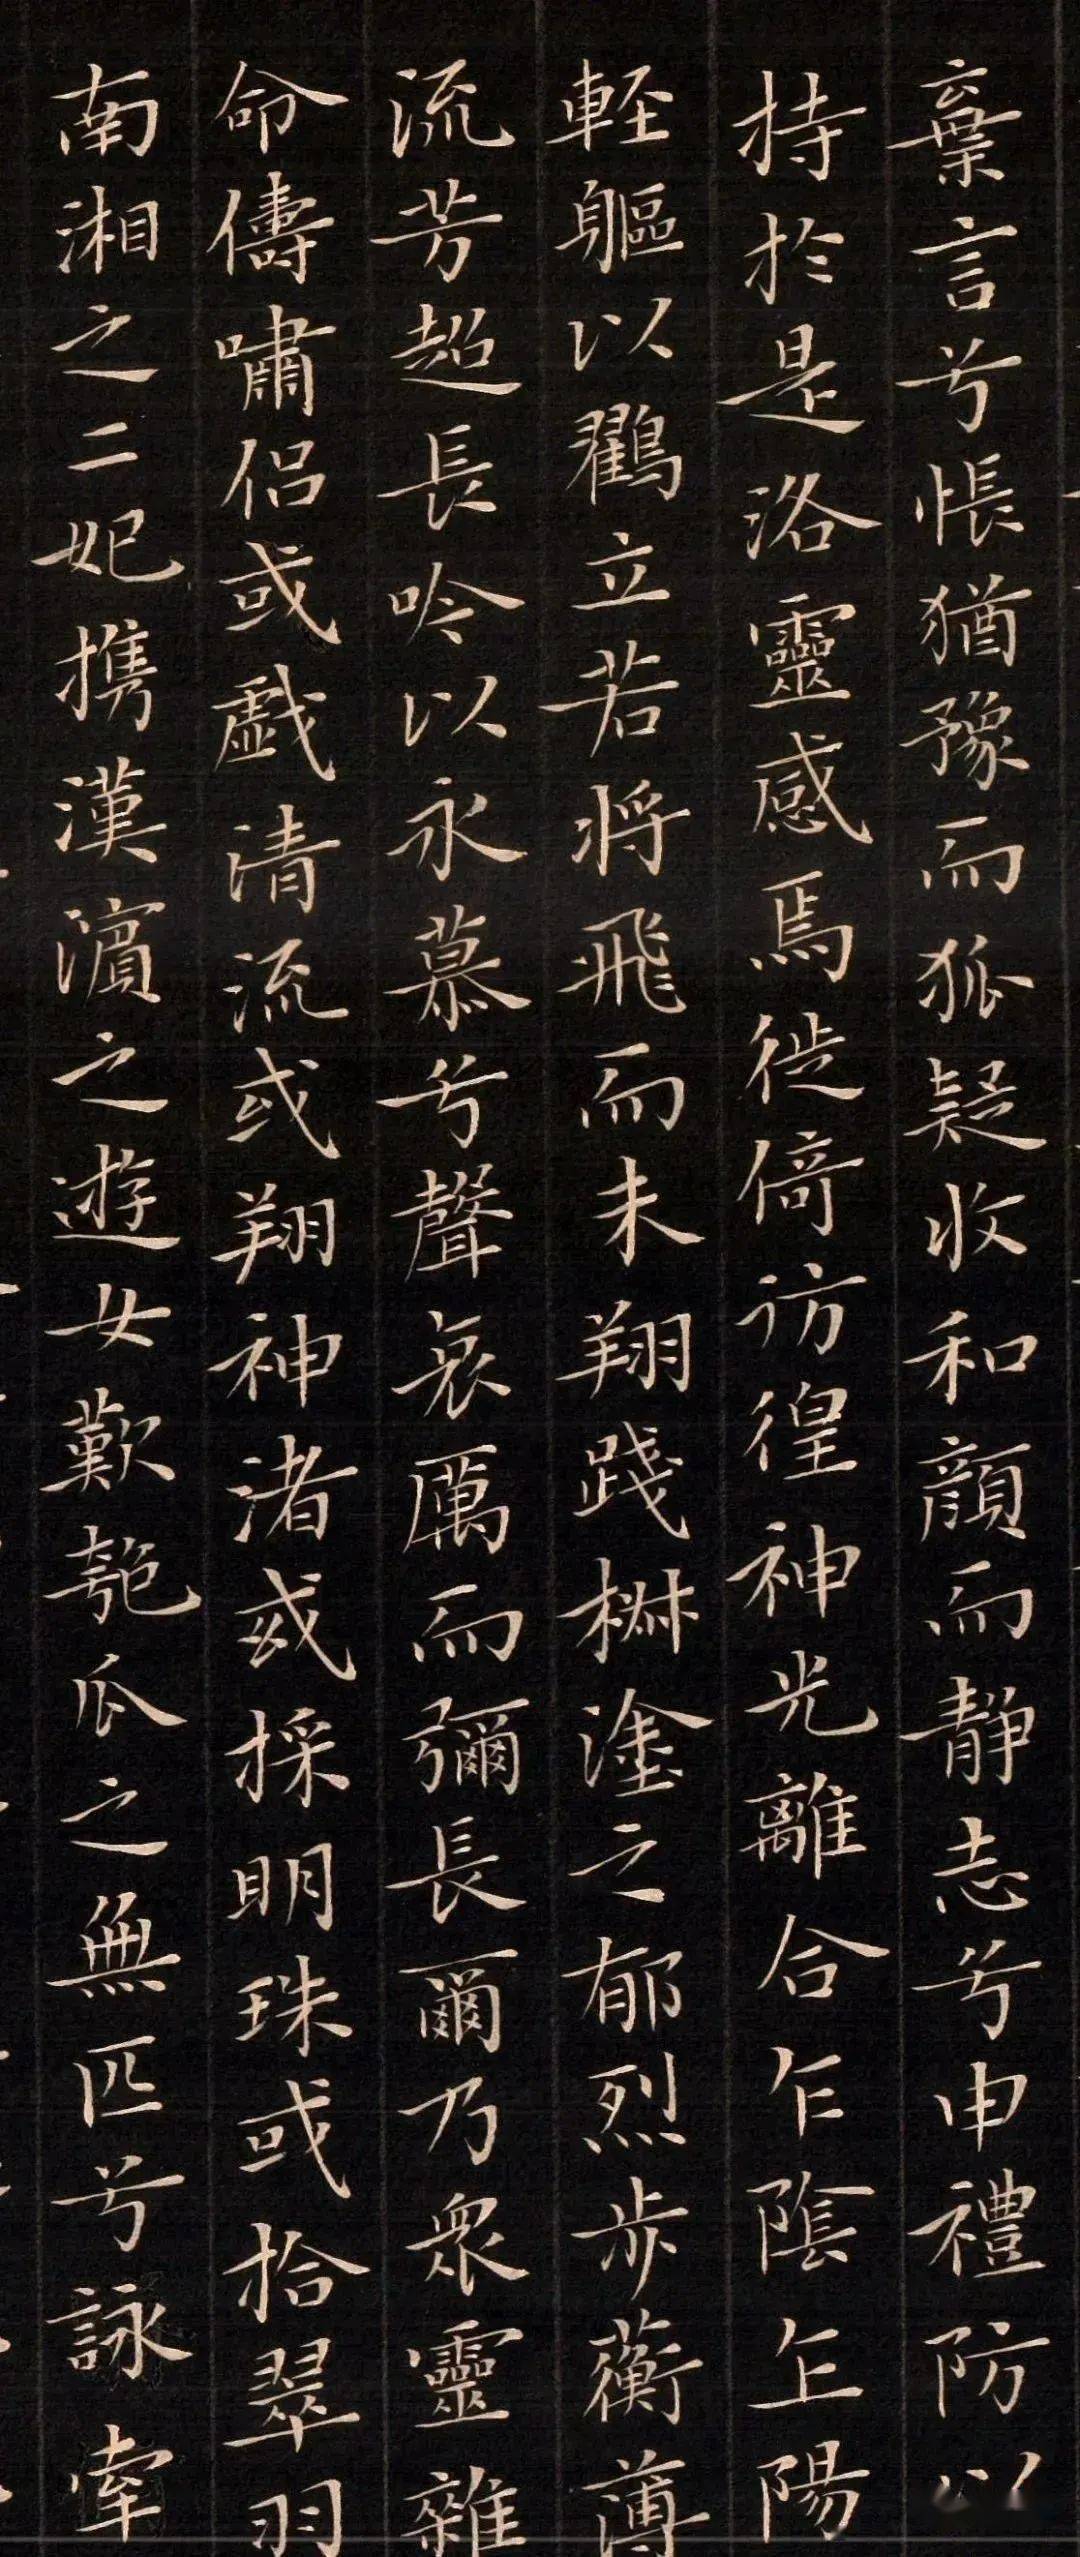 棄言兮悵猶豫而狐疑收和顏而靜志兮申禮防以
持於是洛靈感焉徙倚訪徨神光離合乍陰乍陽
輕軀以鸛立若將飛而未翔踐椒塗之郁烈步蘅薄
流芳超長吟以永慕兮聲哀厲而彌長爾乃眾靈雜
命儔嘯侶或戲清流或翔神渚或採明珠或拾翠羽
南湘之二妃攜漢濱之遊女歎匏瓜之無匹兮詠牽